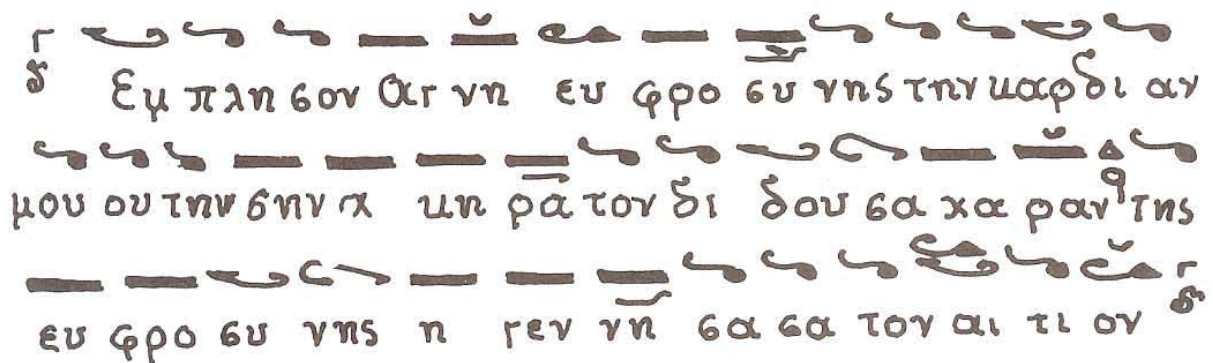 Εμ πλη σον Αγ νη ευ φρο συ νης την καρ δι αν
μου ου την σην α κη ρα τον δι δου σα χα ραν της
ευ φρο συ νης η γεν νη σα σα τον αι τι ον